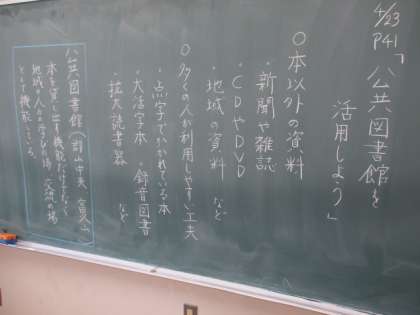 4/23
P41
「公共図書館を
活用しよう」
○本以外の資料
・新聞や雑誌
・CDやDVD
・地域の資料 など
○多くの人が利用しやすい工夫
・点字でかかれている本
・大活字本・録音図書
・拡大読書器 など
公共図書館(郡山中央、富久山)
本を貸し出す機能だけでなく
地域の人の学びの場、交流の場
として機能している。